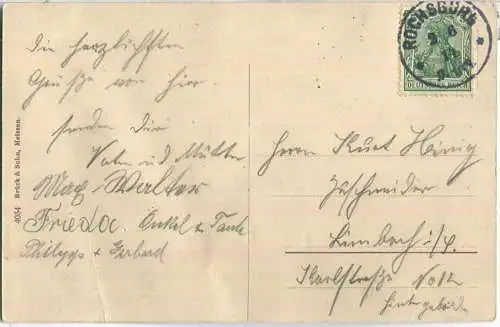 Die herzlichsten
Grüße von hier
senden Dir
Vater und Mutter
Max Walter
Frieda. Onkel u Tante
Philipps + Gerhard
4054 Brück & Sohn, Meissen.
ROCHSBURG
DEUTSCHES REICH
Herrn Kurt Hönig
Zuschneider
Limbach i/S.
Karlstraße No
Hintergebäude